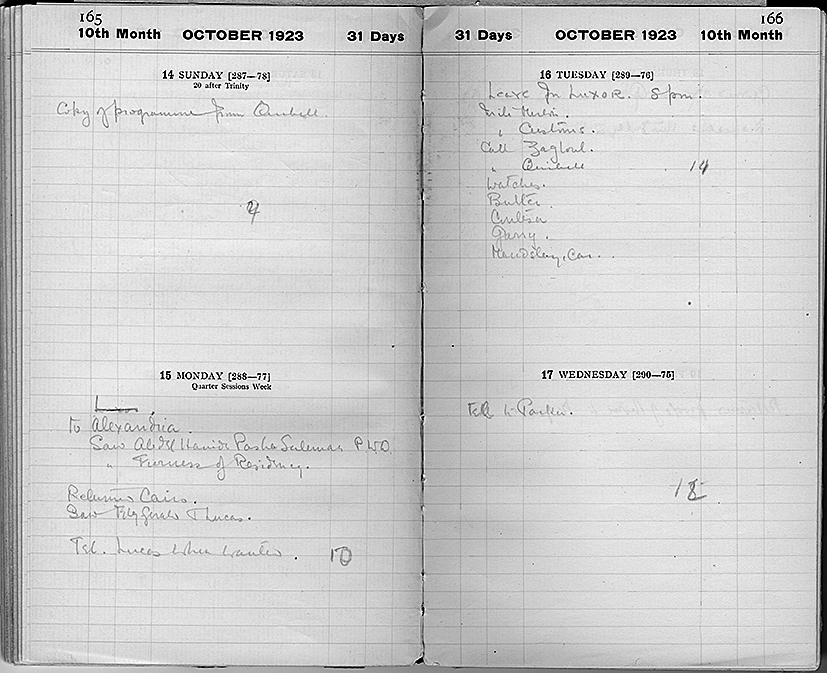 165
10th Month OCTOBER 1923 31 Days
14 SUNDAY [287—78]
20 after Trinity
Copy of programme from Quibell.
15 MONDAY [288—77]
Quarter Sessions Week
To Alexandria.
Saw Abdel Hamid Pasha Suleman P.W.D.
" Furness of Residency.
Returned Cairo.
Saw Fitzgerald & Lucas.
Tel. Lucas when wanted.
10
166
31 Days OCTOBER 1923 10th Month
16 TUESDAY [289—76]
Leave for LUXOR. 8 pm.
Write Merton.
" Customs.
Call Zaghoul.
" Quibell 14
Watches.
Butter
Garry.
Maudslay, Car.
17 WEDNESDAY [290—75]
Tel. to
18